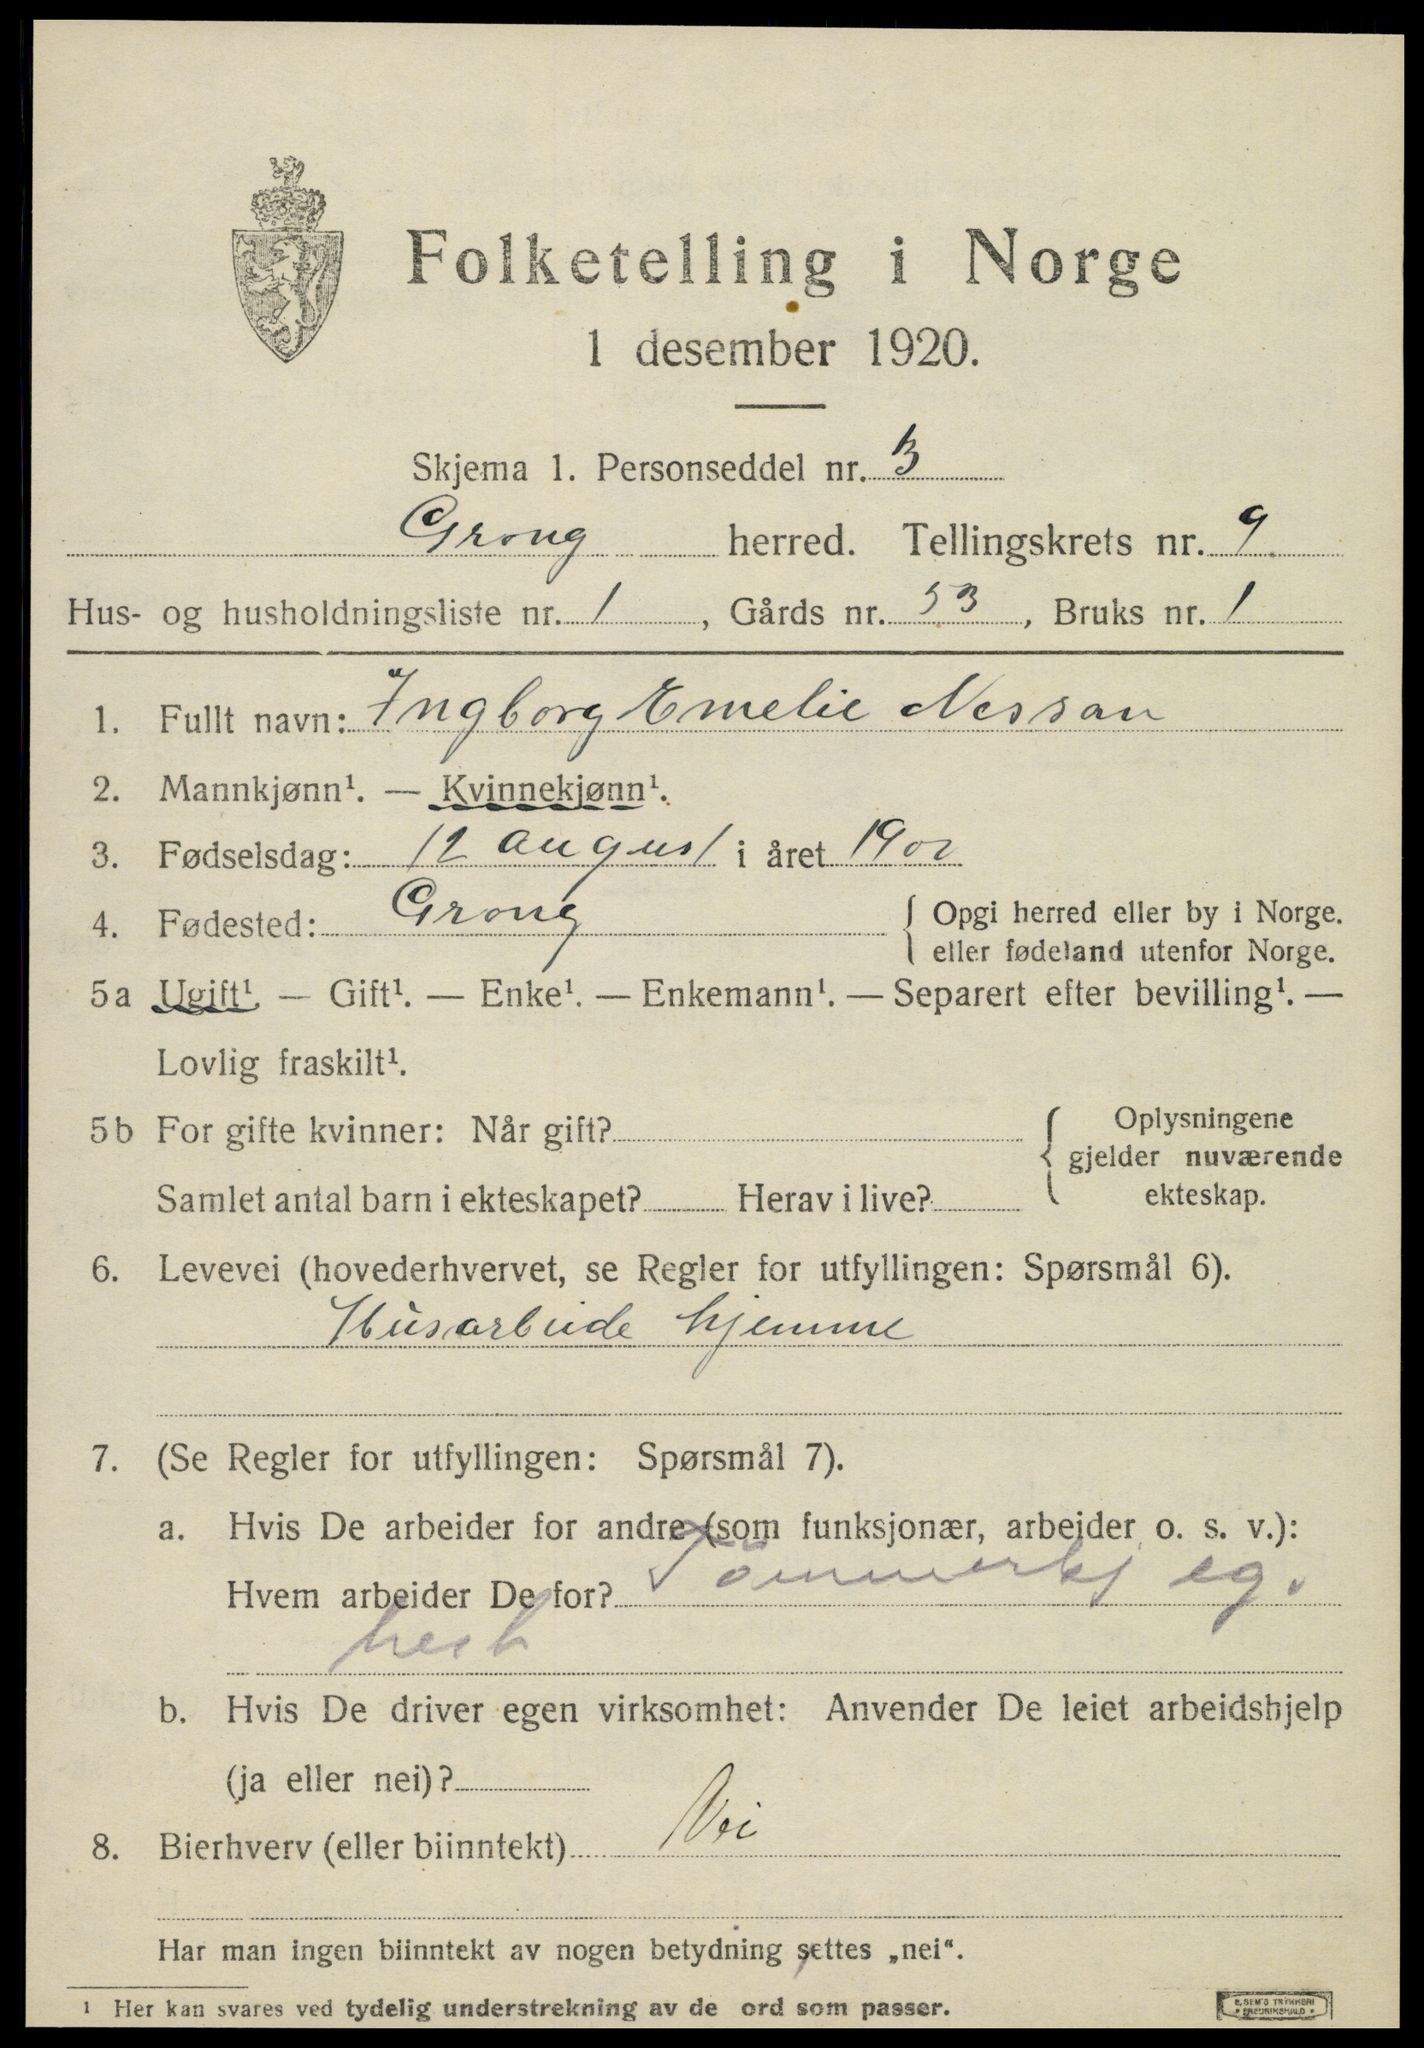 Folketelling i Norge
1 desember 1920.
Skjema 1. Personseddel nr. 3
Grong herred. Tellingskrets nr. 9
Hus- og husholdningsliste nr. 1, Gårds nr. 53, Bruks nr. 1
1. Fullt navn: Ingborg Emelie Nessan
2. Mannkjønn¹. — Kvinnekjønn¹.
3. Fødselsdag: 12 august i året 1902
4. Fødested: Grong { Opgi herred eller by i Norge.
eller fødeland utenfor Norge.
5a Ugift¹ — Gift¹. — Enke¹. — Enkemann¹. — Separert efter bevilling¹. —
Lovlig fraskilt¹.
5b For gifte kvinner: Når gift? { Oplysningene
gjelder nuværende
Samlet antal barn i ekteskapet? Herav i live? ekteskap.
6. Levevei (hovederhvervet, se Regler for utfyllingen: Spørsmål 6).
Husarbeide hjemme
7. (Se Regler for utfyllingen: Spørsmål 7).
a. Hvis De arbeider for andre (som funksjonær, arbeider o. s. v.):
Hvem arbeider De for? Tömmerkj eg.
hest
b. Hvis De driver egen virksomhet: Anvender De leiet arbeidshjelp
(ja eller nei)?
8. Bierhverv (eller biinntekt) Nei
Har man ingen biinntekt av nogen betydning settes „nei“.
¹ Her kan svares ved tydelig understrekning av de ord som passer.
E. SEM'S TRYKKERI
FREDRIKSHALD